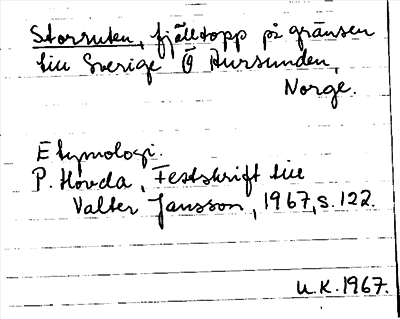 Storruten, fjälltopp på gränsen
till Sverige Ö Aursunden,
Norge.
Etymologi.
P. Hovda, Festskrift till
Valter Jansson, 1967, s. 122.
U.K. 1967.